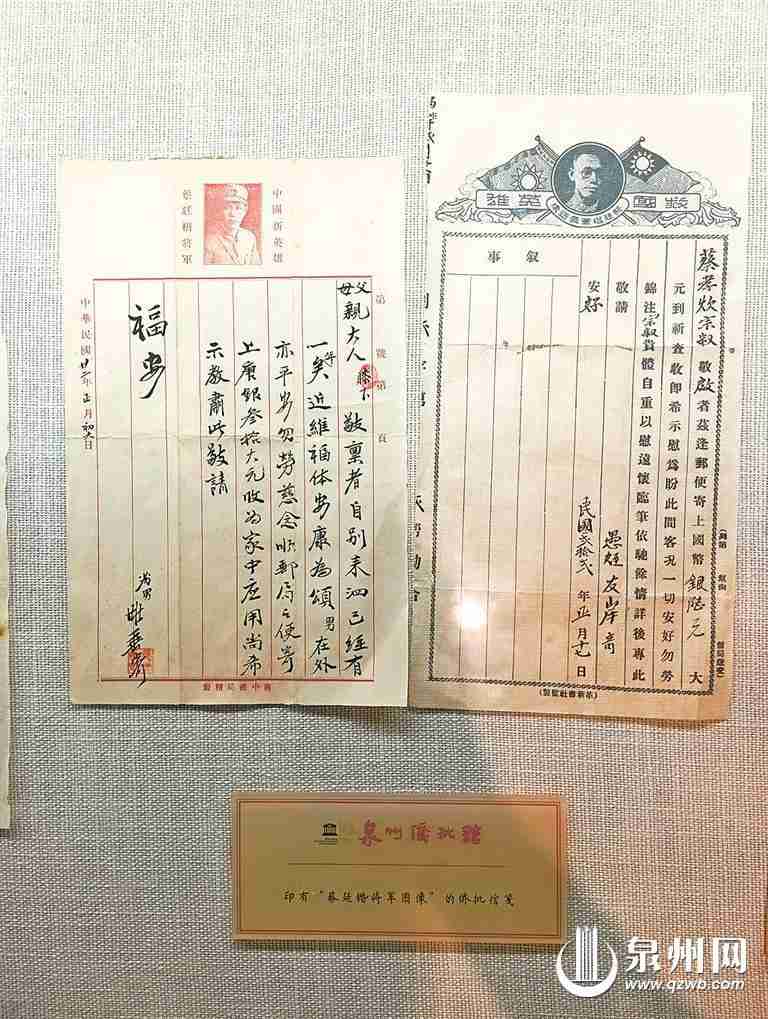 中國新英雄
蔡廷楷將軍
第 號第 頁
父母親大人膝下 敬稟者自別来泗已經有
矣近維福体安康為頌男在外
亦平安勿勞慈念順郵局之便寄
上廣銀叁拾大元收為家中应用尚希
示教肅此敬請
福安
中華民國廿二年正月初六日
救國英雄
蔡孝炊宗叔 敬啟者茲逢郵便寄上國幣銀陸元 大
元到祈查收即希示慰為盼此間客況一切安好勿勞
錦注宗叔貴體自重以慰遠懷臨筆依馳餘情詳後專此
敬請
安好
愚姪友岸 寄
民國貳拾貳年正月十七日
叙事
泉州侨批館
印有“蔡廷锴将军图像”的侨批信笺
泉州网
www.qzwb.com